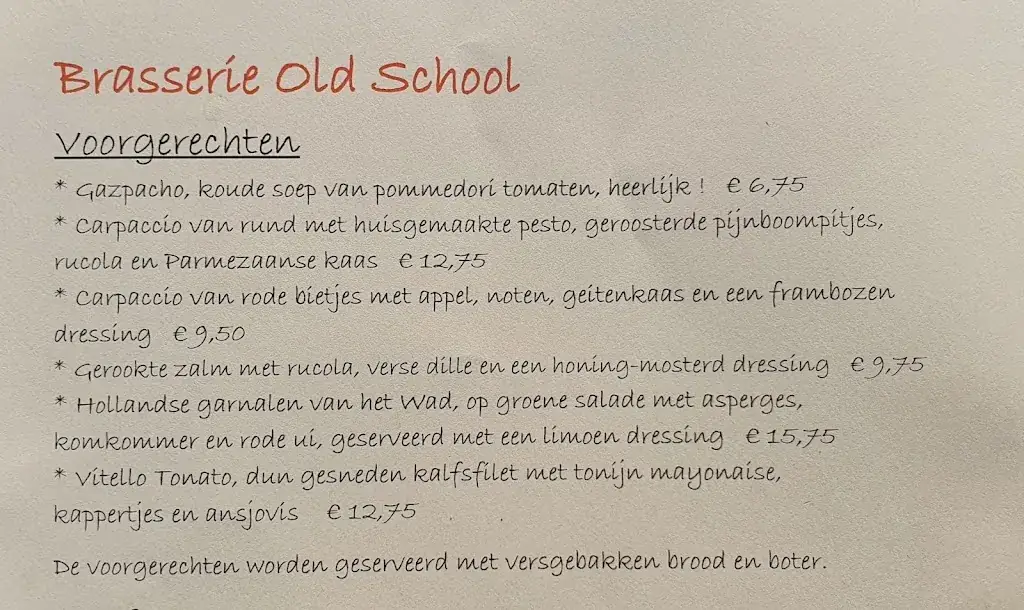 Brasserie Old School
Voorgerechten
* Gazpacho, koude soep van pommedori tomaten, heerlijk ! € 6,75
* Carpaccio van rund met huisgemaakte pesto, geroosterde pijnboompitjes,
rucola en Parmezaanse kaas € 12,75
* Carpaccio van rode bietjes met appel, noten, geitenkaas en een frambozen
dressing € 9,50
* Gerookte zalm met rucola, verse dille en een honing-mosterd dressing € 9,75
* Hollandse garnalen van het Wad, op groene salade met asperges,
komkommer en rode ui, geserveerd met een limoen dressing € 15,75
* Vitello Tonato, dun gesneden kalfsfilet met tonijn mayonaise,
kappertjes en ansjovis € 12,75
De voorgerechten worden geserveerd met versgebakken brood en boter.